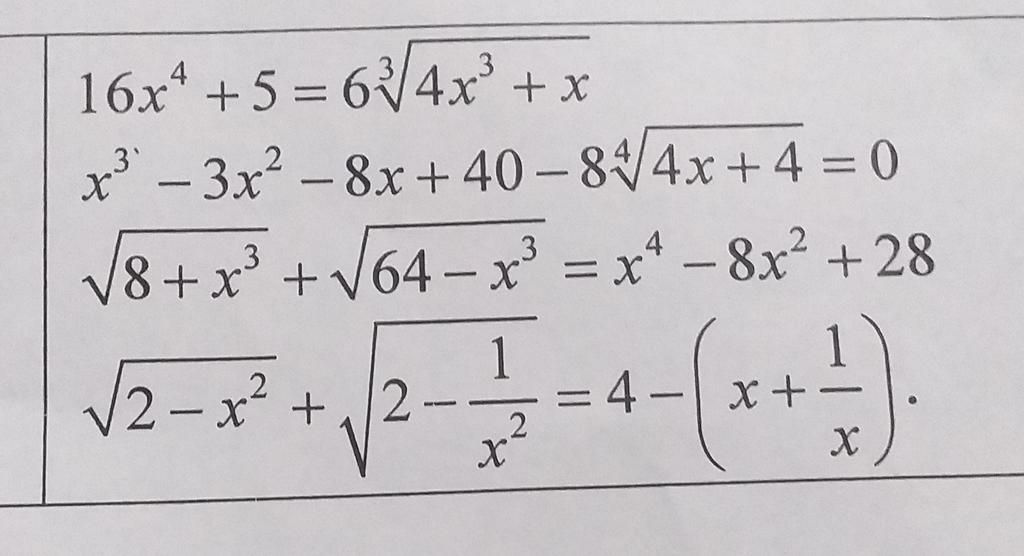 16x⁴ + 5 = 6∛(4x³ + x)
x³ − 3x² − 8x + 40 − 8∜(4x + 4) = 0
√(8 + x³) + √(64 − x³) = x⁴ − 8x² + 28
√(2 − x²) + √(2 − 1/x²) = 4 − (x + 1/x).